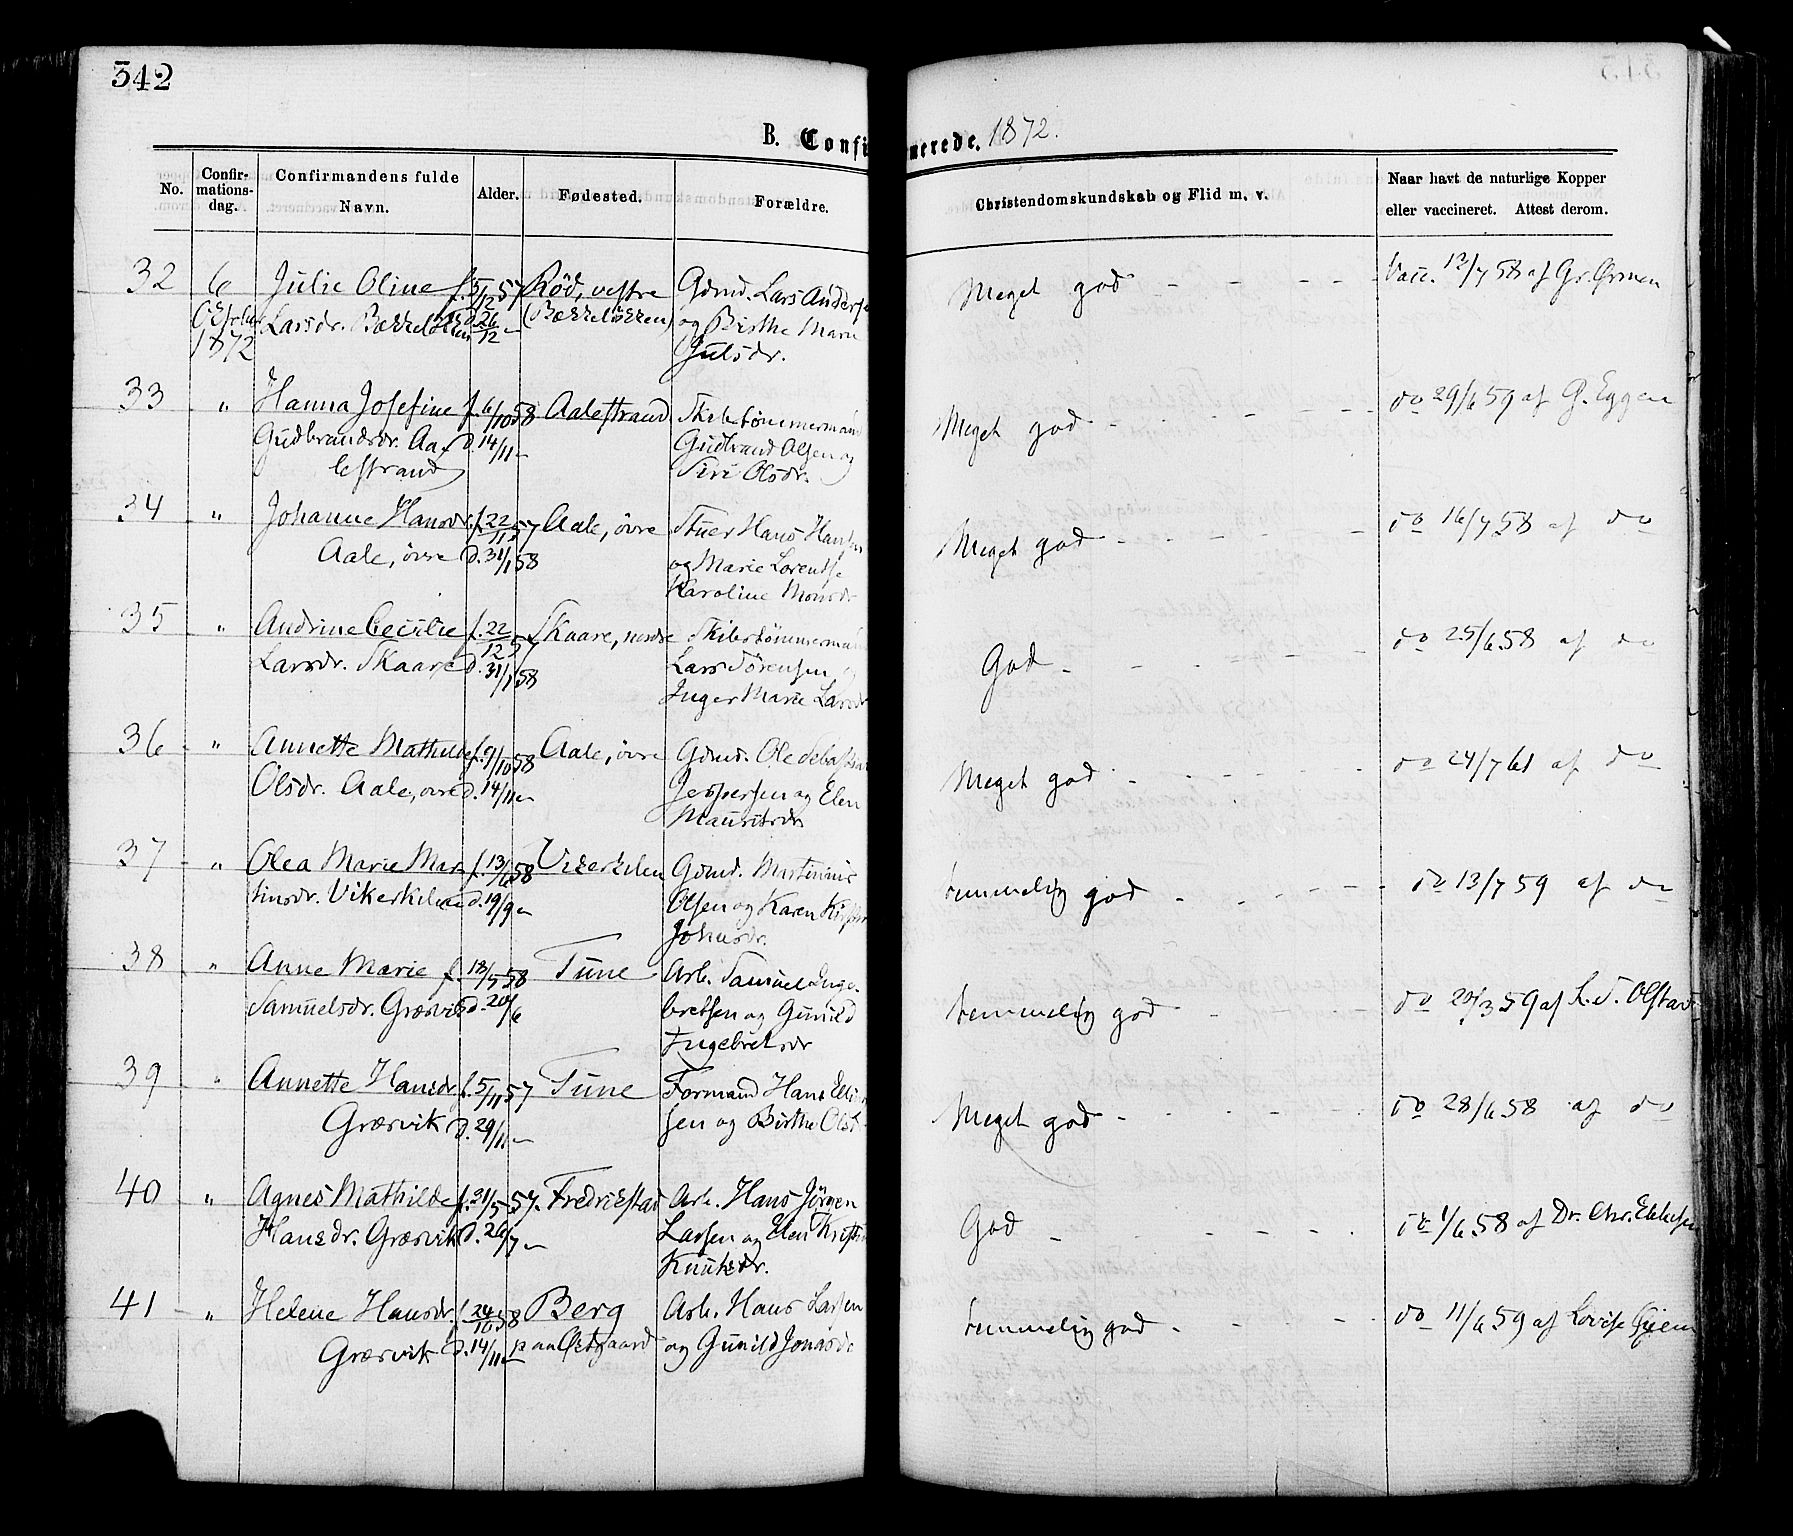 342
B. Confi merede. 1872.
No.
Confir-
mations-
dag.
Confirmandens fulde
Navn.
Alder.
Fødested.
Forældre.
Christendomskundskab og Flid m. v.
Naar havt de naturlige Kopper
eller vaccineret. Attest derom.
32 6 Julie Oline f. 5/12 57 Rød, vestre Gdmd. Lars Anderse Meget god - - - - Vacc. 12/7 58 af Gr. Ørmen
October Larsdr. Bækkeløkken d. 26/12 - (Bækkeløkken) og Birthe Marie
1872 Julsdr.
33 " Hanna Josefine f. 6/10 58 Aalestrand Skibstømmermand Meget god - - - - do 29/6 59 af G. Eggen
Gudbrandsdr. Aa- d. 14/11 - Gudbrand Olsen og
lestrand Siri Olsdr.
34 " Johanne Hansdr. f. 22/11 57 Aale, øvre Stuer Hans Hansen Meget god - - - - do 16/7 58 af do
Aale, øvre d. 31/1 58 og Marie Lorentse
Karoline Monsdr
35 " Andrine Cecilie f. 22/12 57 Skaare, nordre Skibstømmermand God - - - - do 25/6 58 af do
Larsdr. Skaare d. 31/1 58 Lars Sørensen og
Inger Marie Larsdr
36 " Annette Mathilde f. 9/10 58 Aale, øvre Gdmd. Ole Meget god - - - - do 24/7 61 af do
Olsdr. Aale, øvre d. 14/11 - Jespersen og Elen
Mauritsdr
37 " Olea Marie Mar- f. 13/6 58 Vikerkilen Gdmd. Martinius temmelig god - - - - do 13/7 59 af do
tinsdr. Vikerkilen d. 19/9 - Olsen og Karen
Johnsdr.
38 " Anne Marie f. 18/5 58 Tune Arb. Samuel Inge- temmelig god - - - - do 20/3 59 af L. S. Olstad
Samuelsdr. Græsvik d. 20/6 bretsen og Gunild
Ingebretsdr
39 " Annette Hansdr. f. 5/11 57 Tune Formand Hans Meget god - - - - do 28/6 58 af do
Græsvik d. 29/11 - sen og Birthe Olsd
40 " Agnes Mathilde f. 21/5 57. Fredrikstad Arb. Hans Jörgen God - - - - do 1/6 58 af Dr. Chr.
Hansdr. Græsvik d. 26/7 - Larsen og Elen
Knutsdr.
41 " Helene Hansdr. f. 24/10 58 Berg Arb. Hans Larsen temmelig god - - - - do 11/6 59 af Lovise
Græsvik d. 14/11 - paa Østgaard og Gunild Jonasdr